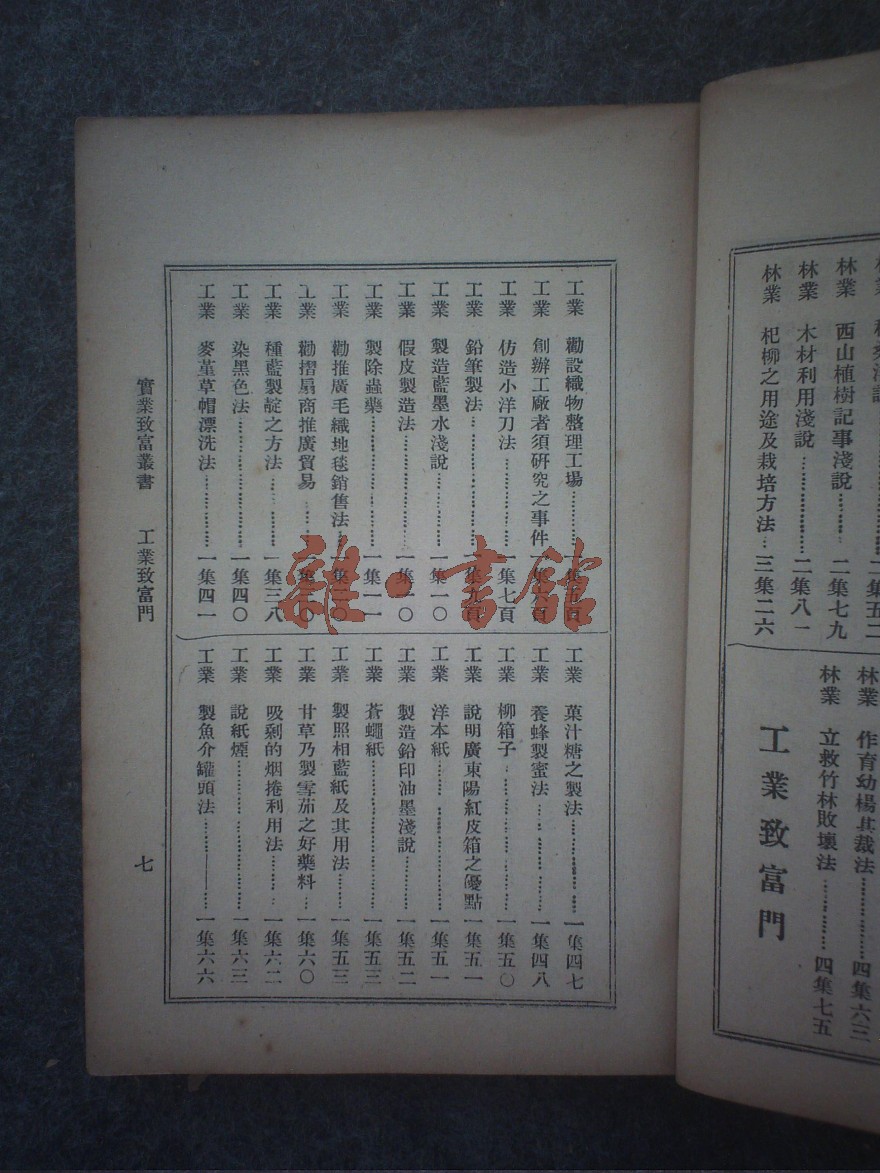 林業 西山植樹記事淺說……二集七九
林業 木材利用淺說……二集八一
林業 杞柳之用途及栽培方法…三集二六
林業 作育幼楊其裁法……四集六三
林業 立救竹林敗壞法……四集七五
工業致富門
工業 勸設織物整理工場……一集五頁
工業 創辦工廠者須研究之事件 一集六頁
工業 仿造小洋刀法……一集七頁
工業 鉛筆製法……一集九頁
工業 製造藍墨水淺說……一集一〇
工業 假皮製造法……一集一〇
工業 製除蟲藥……一集一一
工業 勸推廣毛織地毯銷售法…一集二〇
工業 勸摺扇商推廣貿易……一集三〇
工業 種藍製靛之方法……一集三八
工業 染黑色法……一集四〇
工業 麥莖草帽漂洗法……一集四一
工業 菓汁糖之製法……一集四七
工業 養蜂製蜜法……一集四八
工業 柳箱子……一集五〇
工業 說明廣東陽紅皮箱之優點 一集五一
工業 洋本紙……一集五一
工業 製造鉛印油墨淺說……一集五二
工業 蒼蠅紙……一集五三
工業 製照相藍紙及其用法……一集五三
工業 甘草乃製雪茄之好藥料…一集六〇
工業 吸剩的烟捲利用法……一集六二
工業 說紙煙……一集六三
工業 製魚介罐頭法……一集六六
實業致富叢書 工業致富門 七
雜·書館